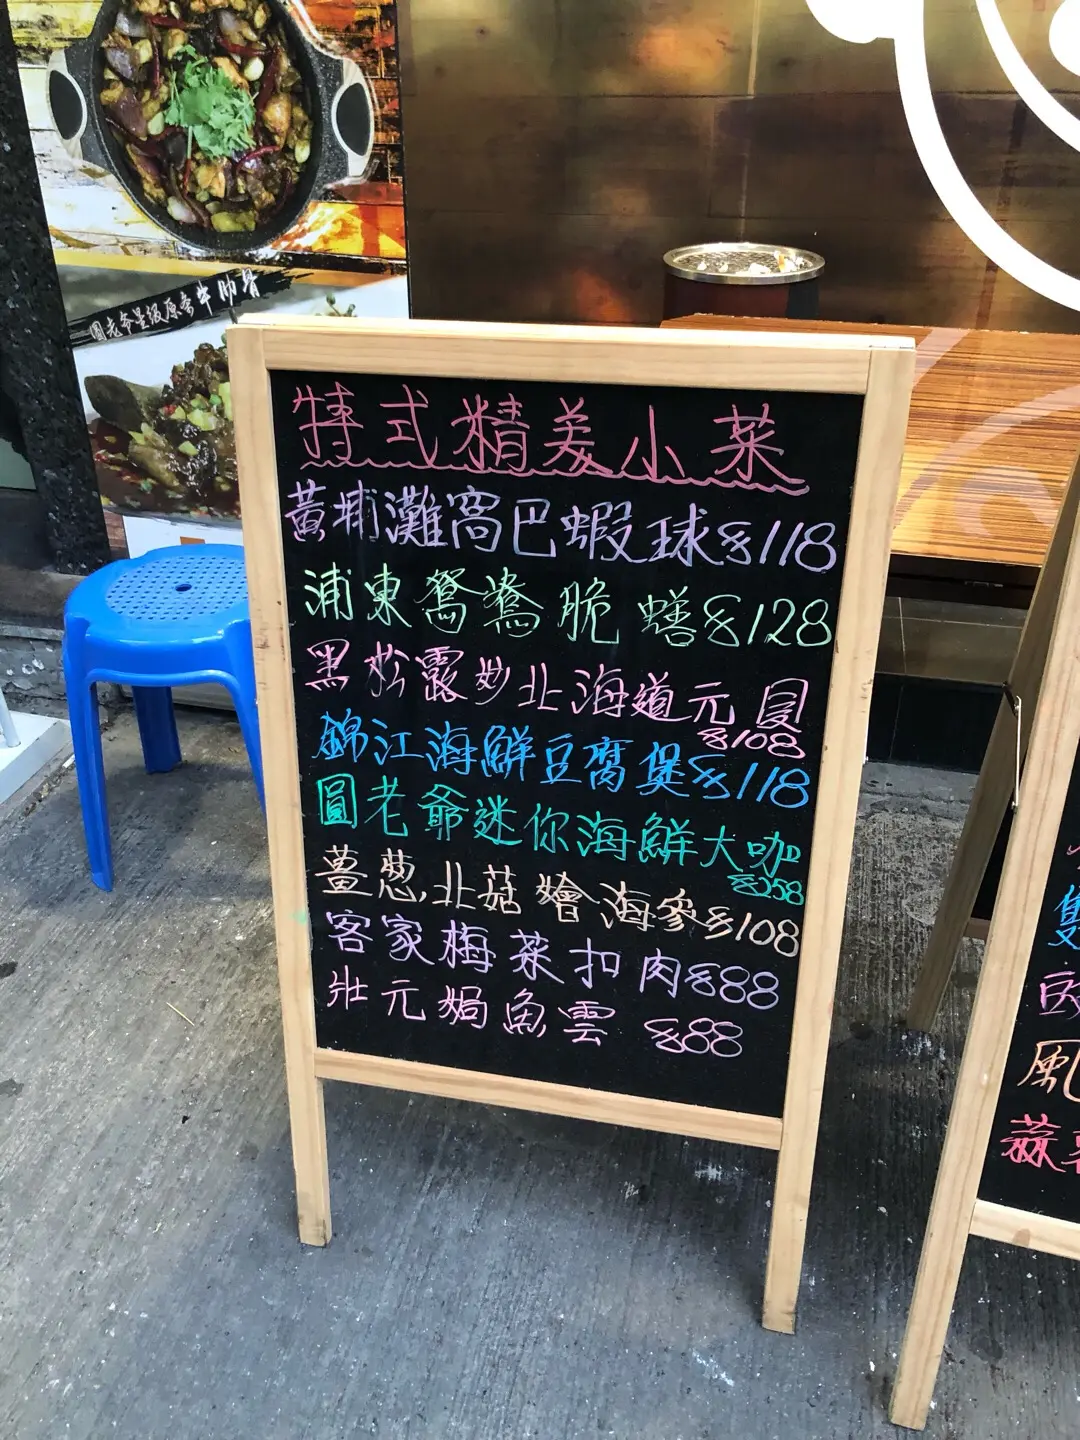 圓老爺星級原味牛肋骨
特式精美小菜
黃埔灘窩巴蝦球$118
浦東鴛鴦脆蟮$128
黑松露炒北海道元國
$108
錦江海鮮豆腐煲$118
圓老爺迷你海鮮大咖
$258
薑蔥北菇燴海參$108
客家梅菜扣肉$88
壯元焗魚雲 $88
雙
風
蒜